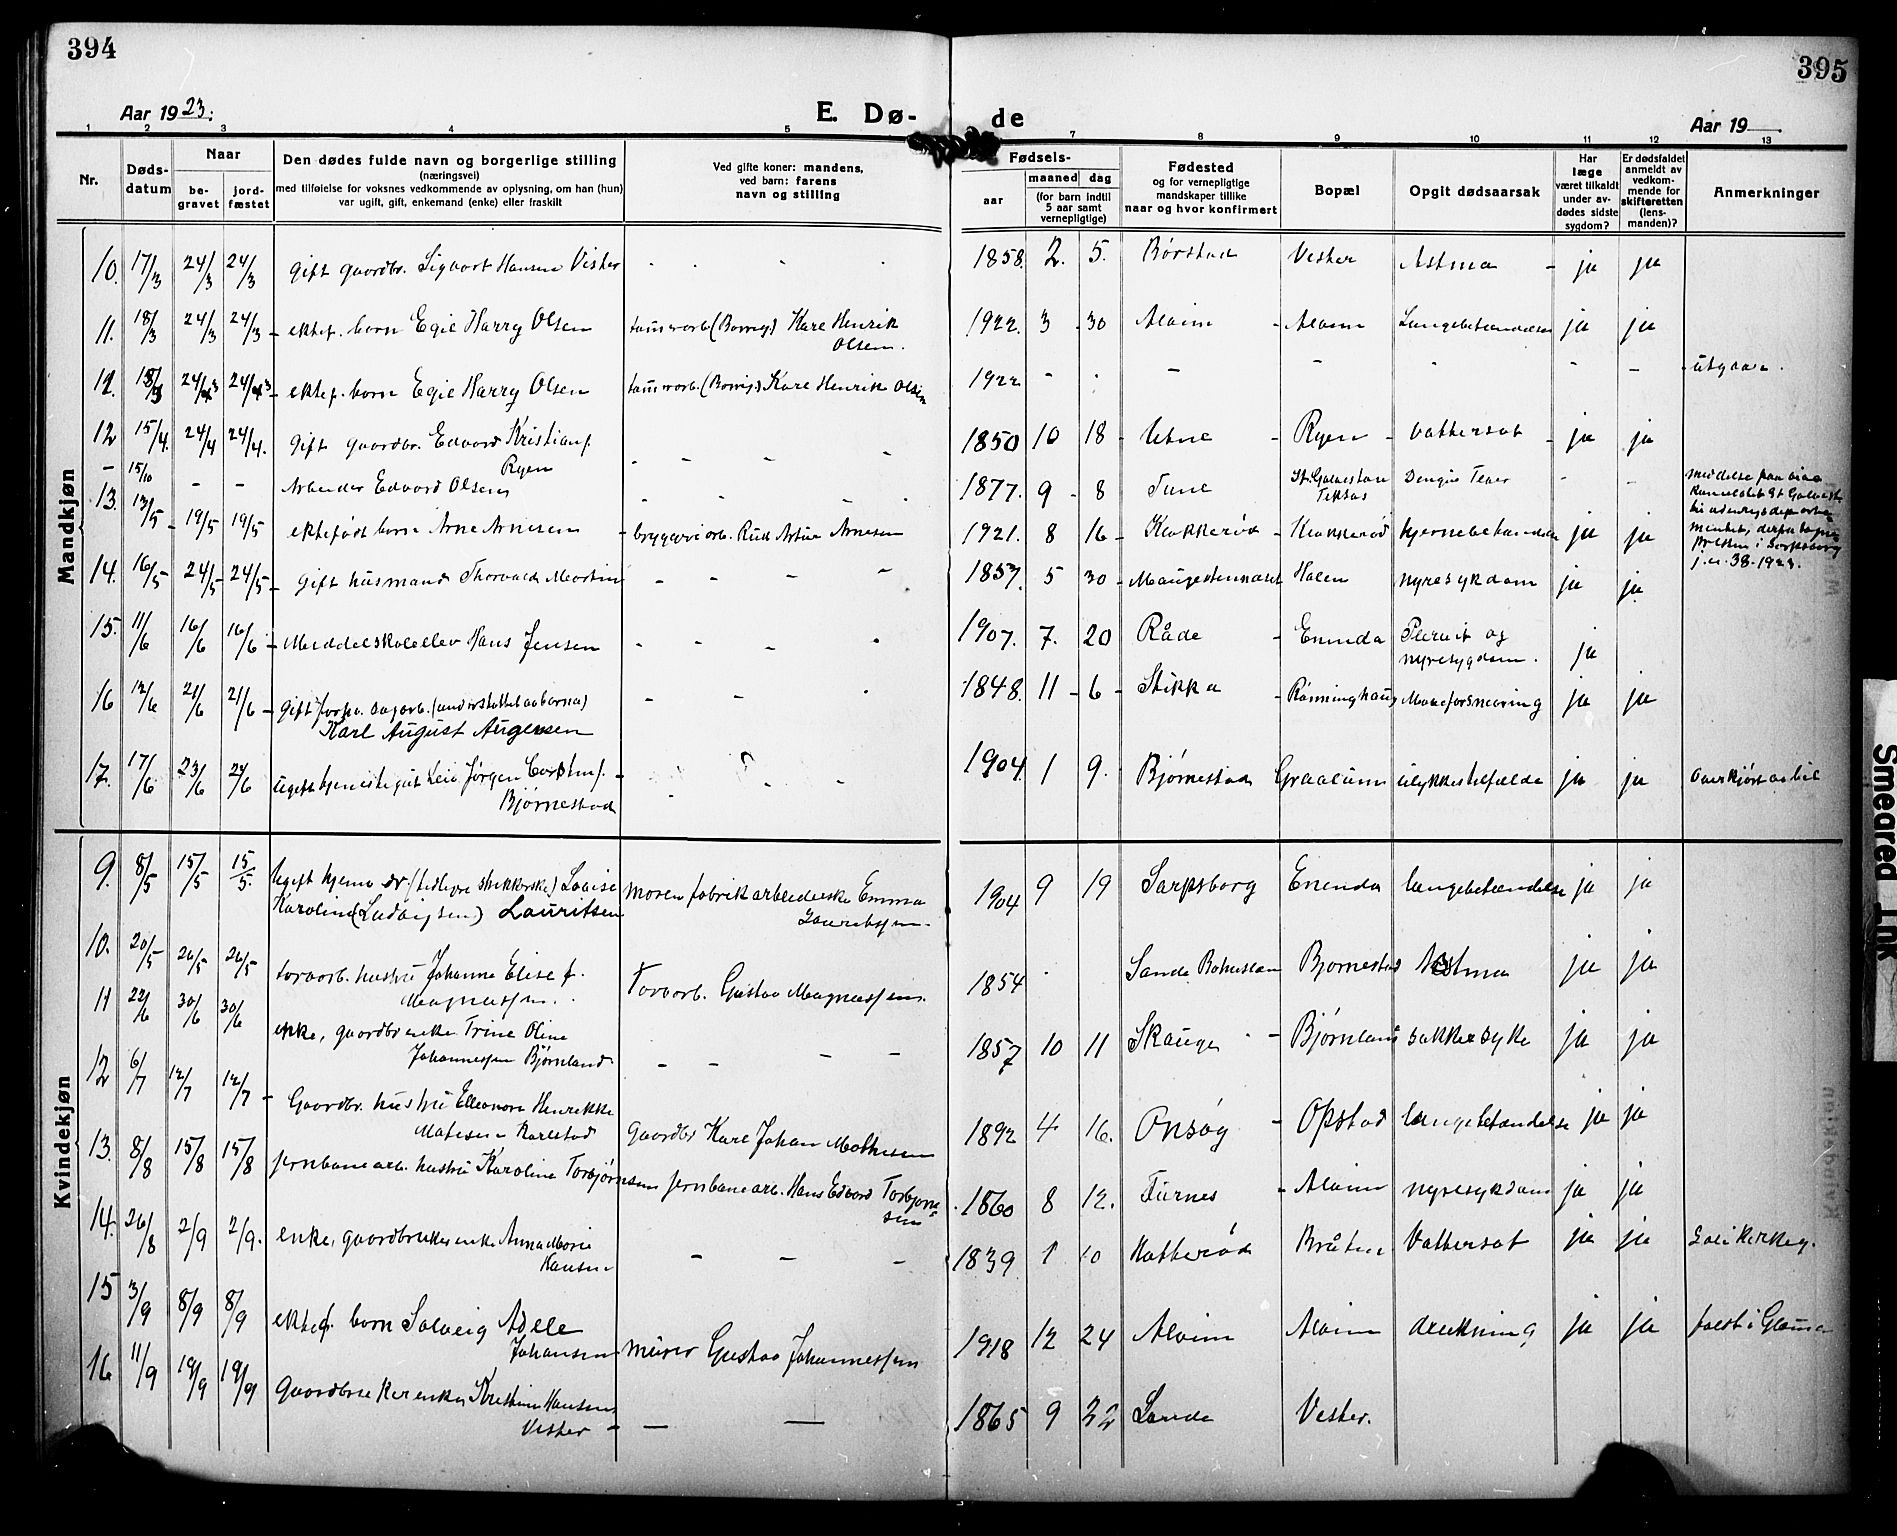 394
395
Aar 1923.
E. Dø-
de
Aar 19
1 2 3 4 5 7 8 9 10 11 12 13
Nr.
Døds-
datum
Naar
be-
gravet
jord-
fæstet
Den dødes fulde navn og borgerlige stilling
(næringsvei)
med tilføielse for voksnes vedkommende av oplysning, om han (hun)
var ugift, gift, enkemand (enke) eller fraskilt
Ved gifte koner: mandens,
ved barn: farens
navn og stilling
Fødsels-
aar
maaned dag
(for barn indtil
5 aar samt
vernepligtige)
Fødested
og for vernepligtige
mandskaper tillike
naar og hvor konfirmert
Bopæl
Opgit dødsaarsak
Har
læge
været tilkaldt
under av-
dødes sidste
sygdom?
Er dødsfaldet
anmeldt av
vedkom-
mende for
skifteretten
(lens-
manden)?
Anmerkninger
Mandkjøn
10. 17/3 24/3 24/3 gift gaardbr. Sigvart Hansen Vister 1858. 2. 5. Børstad Vister Astma - ja ja
11. 18/3 24/3 24/3 - ektef. barn Egil Harry Olsen (Borreg.) Kare Henrik
Olsen. 1922. 3 - 30 Alvim - Alvim Lungebetændelse ja ja
12. 18/3 24/3 24/3 - ektef. barn Egil Harry Olsen (Borreg.) Kare Henrik Olsen 1922 - - - - - - - utgaar.
12 15/4. 24/4 24/4. gift gaardbr. Edvard Kristians.
Ryen 1850 10 18 - Utne - Ryen - Vattersot - ja ja
- 15/10 - - Arbeider Edvard Olsen 1877. 9 - 8 Tune St. Galvestone
Teksas Dengue Fever
13. 13/5 - 19/5 19/5 ektefødt barn Arne Arnesen - bryggeriarb. Artur Arnesen 1921. 8 16 - Klokkerød - Klokkerød hjernebetændelse ja ja
14. 16/5 24/5 - 24/5 - gift husmand Thorvald Martin 1857. 5 30 - Haugestennæset Holen nyresykdom ja ja
j. nr. 38-1923.
15. 11/6 16/6 16/6 - Middelskoleelev Hans Jensen 1907. 7. 20 Råde - Eninda Plevrit og
nyresygdom. ja
16 12/6 21/6 21/6 - gift
Karl August Augensen 1848. 11 - 6 - Stikka - Rønninghaug ja ja
17. 17/6 23/6 24/6 ugift tjenestegut Leif Jørgen
Bjørnestad 1904 1 9. Bjørnestad Graalum ulykkestilfælde ja ja Overkjørt av bil
Kvindekjøn
9. 8/5 15/5 15/5. Ugift hjemmev. Louise
Karoline (Ludvigsen) Lauritsen Moren fabrikarbeiderske Emma
Lauritssen. 1904 9 19 Sarpsborg Eninda lungebetændelse ja ja
10. 20/5 26/5 26/5 hustru Johanne Elise f.
Magnussen. Gustav Magnussen. 1854 Bjørnestad Astma ja ja
11 22/6 30/6 30/6 enke, gaardbr.enke Trine Oline
Johannessen Bjørnland 1857 10 11 Skauge - Bjørnland sukkersyke ja ja
12 6/7 12/7 12/7 - Gaardbr. hustru Elleonora Henrikke
Matisen Karlstad Gaardbr. Karl Johan Mathisen 1892 4 16. Onsøy - Opstad lungebetændelse ja ja
13. 8/8 15/8 15/8 jernbanearb. hustru Karoline Torbjørnsen jernbanearb. Hans Edvard Torbjørn-
sen 1860 8 12. Furnes - Alvim nyresykdom ja ja
14. 26/8 2/9 2/9. enke, gaardbrukerenke Anna Marie
Hansen 1839 1 10 Hatterød Bråten Vattersot ja ja
15 3/9 8/9 8/9 ektef. barn Solveig Adele
Johansen murer Gustav Johannessen 1918 12 24 Alvim Alvim drukning ja ja faldt i Glomma
16 11/9 19/9 19/9 Gaardbrukerenke Kristine Hansen
Vister - 1865 9 22 Vister.
Smeared Ink